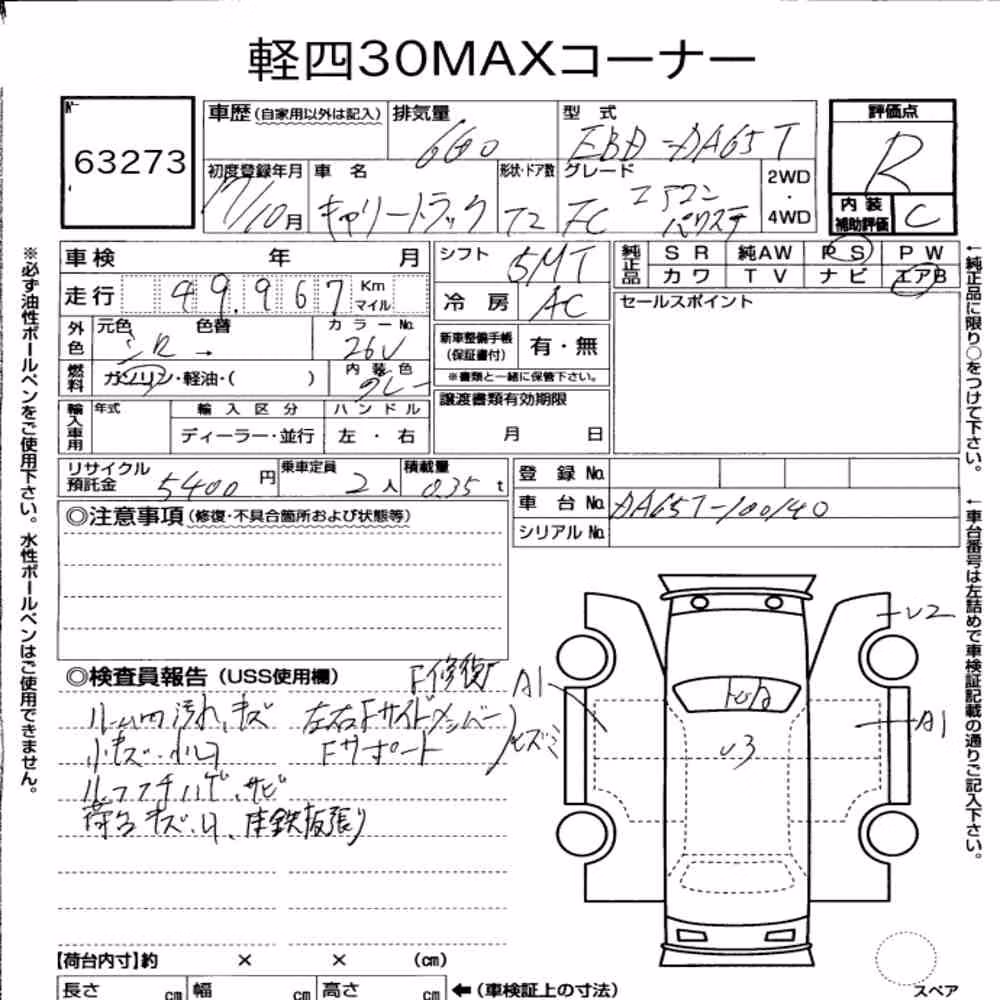 軽四30MAXコーナー
№
63273
車歴(自家用以外は記入)
排気量
660
型 式
EBD-DA65T
評価点
R
初度登録年月
17/10月
車 名
キャリートラック
形状・ドア数
T2
グレード
FC エアコン
パワステ
2WD
・
4WD
内 装
補助評価
C
車検 年 月
シフト
5MT
純正品
S R 純AW P S P W
カワ T V ナビ エアB
走行 49,967 Km
マイル
冷 房
AC
セールスポイント
外色
元色 色替
シロ →
カラー№
26U
新車整備手帳
(保証書付)
有・無
※書類と一緒に保管下さい。
燃料
ガソリン・軽油・( )
内 装 色
グレー
譲渡書類有効期限
月 日
輸入車用
年式
輸 入 区 分
ハ ン ド ル
ディーラー・並行
左 ・ 右
リサイクル
預託金
5400円
乗車定員
2人
積載量
0.35t
登 録 №
車 台 №
DA65T-100140
シリアル №
◎注意事項(修復・不具合箇所および状態等)
◎検査員報告(USS使用欄)
F修復
ルーム内汚れ、キズ
左右Fサイドメンバー
小キズ・小凹
Fサポート
ルーフ
サビ
荷台キズ・凹、床鉄板張り
A1
U2
A1
U3
【荷台内寸】約 × × (cm)
長さ cm
幅 cm
高さ cm
←(車検証上の寸法)
スペア
※必ず油性ボールペンをご使用下さい。水性ボールペンはご使用できません。
←純正品に限り○をつけて下さい。
←車台番号は左詰めで車検証記載の通りご記入下さい。